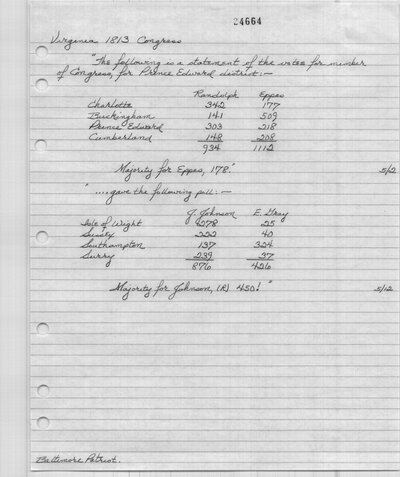 24664
Virginia 1813 Congress
"The following is a statement of the votes for member
of Congress, for Prince Edward district:—
Randolph Eppes
Charlotte 342 177
Buckingham 141 509
Prince Edward 303 218
Cumberland 148 208
934 1112
Majority for Eppes, 178." 5/2
"....gave the following poll:—
J. Johnson E. Gray
Isle of Wight 278 25
Sussex 222 40
Southampton 137 324
Surry 239 37
876 426
Majority for Johnson, (R) 450!" 5/12
Baltimore Patriot.